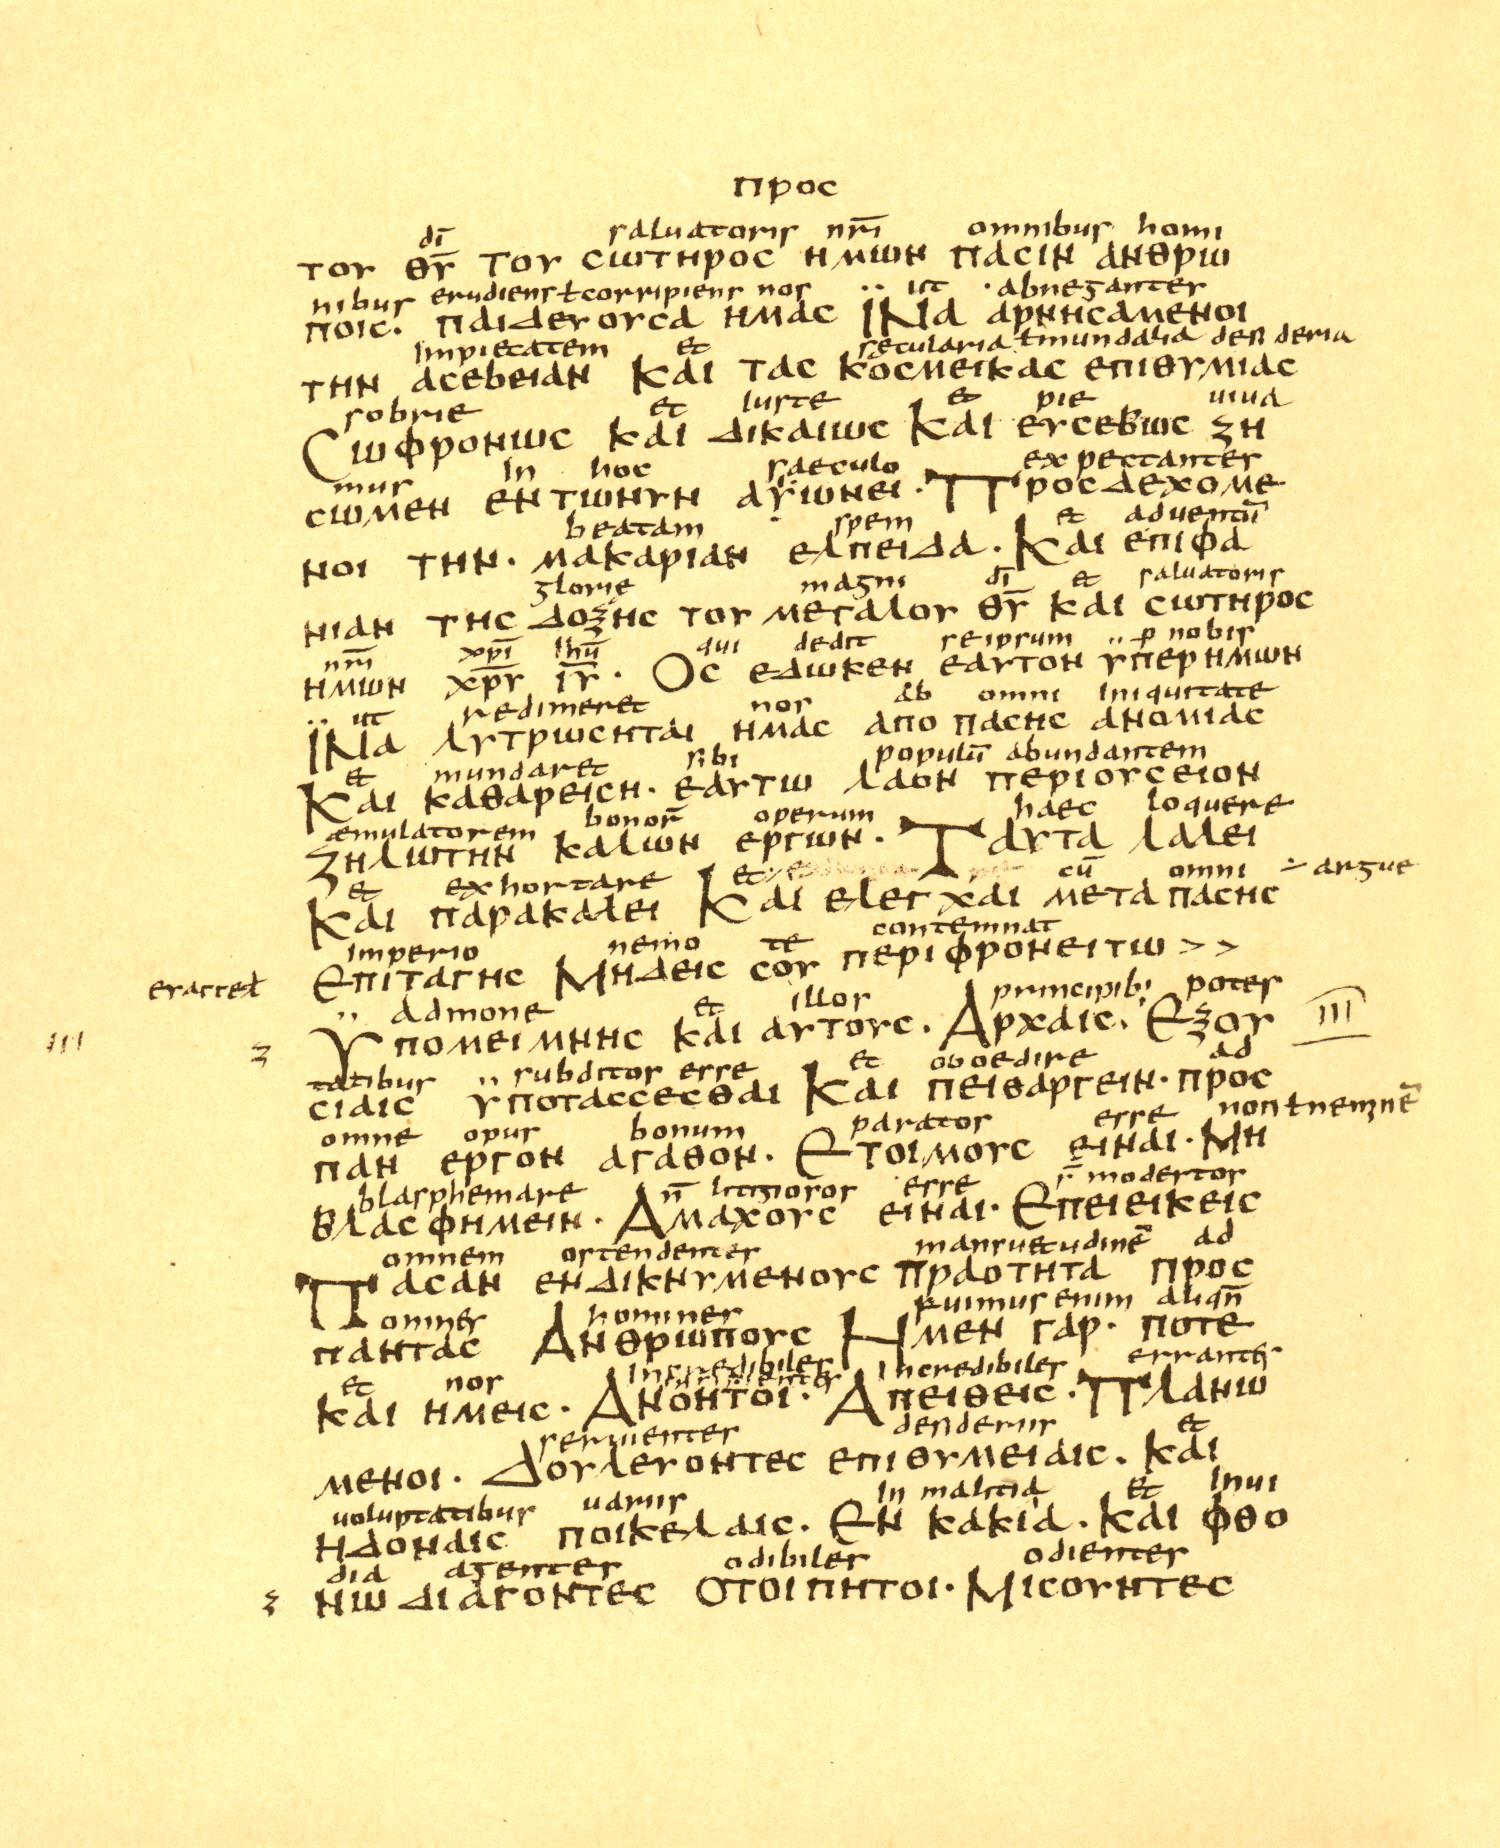 προс
di saluatoris nr̄i omnibus homi
του θ̅υ̅ του сωτηροс ημων παсιν ανθρω
nibus erudiens ł corripiens nos ut abnegantes
ποιс· παιδευουсα ημαс ϊνα αρνηсαμενοι
impietatem et secularia ł mundana desideria
την αсεβειαν και ταс κοсμεικαс επιθυμιαс
sobrie et iuste et pie uiua
Сωφρονωс και δικαιωс και ευсεβωс ζη
mus in hoc saeculo expectantes
сωμεν εν τωνυν αιωνει· Προсδεχομε
beatam spem et aduentū
νοι την· μακαριαν ελπειδα· Και επιφα
glorię magni di et saluatoris
νιαν τηс δοξηс του μεγαλου θ̅υ̅ και сωτηροс
nr̄i xp̄i ihū qui dedit seipsum p nobis
ημων χ̅ρ̅υ̅ ι̅υ̅· Οс εδωκεν εαυτον ϋπερ ημων
ut redimeret nos ab omni iniquitate
Ϊνα λυτρωсηται ημαс απο παсηс ανομιαс
et mundaret sibi populū abundantem
Και καθαρειсη· εαυτω λαον περιουсειον
aemulatorem bonoꝝ operum haec loquere
Ζηλωτην καλων εργων· Ταυτα λαλει
et exhortare et cū omni ÷ argue
Και παρακαλει Και ελεγχαι μετα παсηс
imperio nemo te contemnat
Επιταγηс Μηδειс сου περιφρονειτω >>
admone et illos principibᵢ potes
Ϋπομειμνηс και αυτουс· Αρχαιс· Εξου III
III
tatibus subditos esse et oboedire ad
сιαιс ϋποταссεсθαι Και πειθαργειν· προс
omne opus bonum paratos esse non ł neminē
παν εργον αγαθον· Ετοιμουс ειναι· Μη
blasphemare n̄ litigiosos esse s̄ modestos
βλαсφημειν· Αμαχουс ειναι· Επειεικειс
omnem ostendentes mansuetudinē ad
Παсαν ενδικνυμενουс πραοτητα προс
omnes homines fuimus enim aliqn̄
πανταс Ανθρωπουс Ημεν γαρ· ποτε
et nos incredibiles errantes
και ημειс· Ανοητοι· Απειθειс· Πλανω
seruientes desideriis et
μενοι· Δουλευοντεс επιθυμειαιс· Και
uoluptatibus uariis in malitia et inui
ηδοναιс ποικελαιс· Εν κακια· Και φθο
dia agentes odibiles odientes
νω διαγοντεс οτοιπητοι· Μιсουντεс